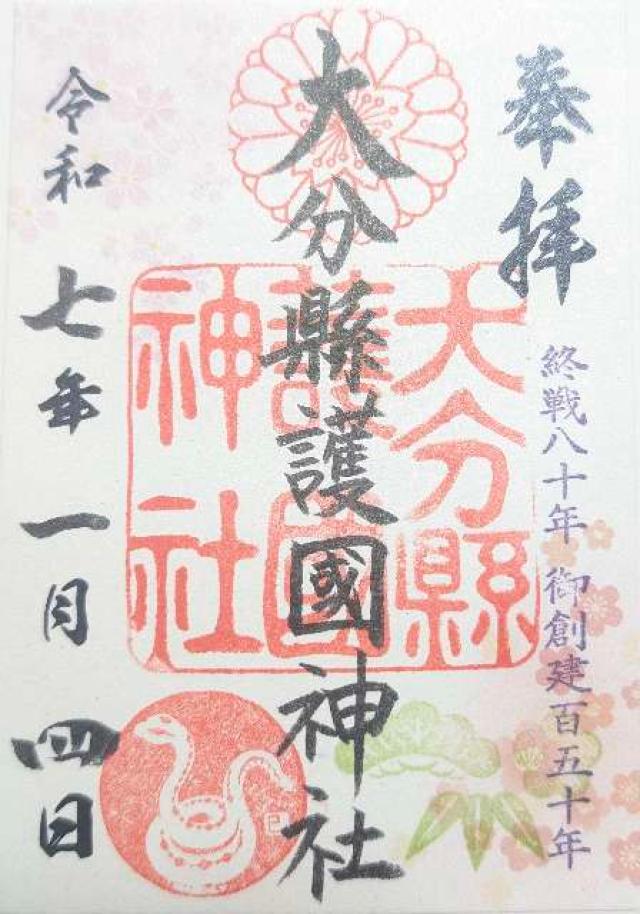 奉拝
終戦八十年 御創建百五十年
大分縣護國神社
大分縣護國神社
令和七年一月四日
巳